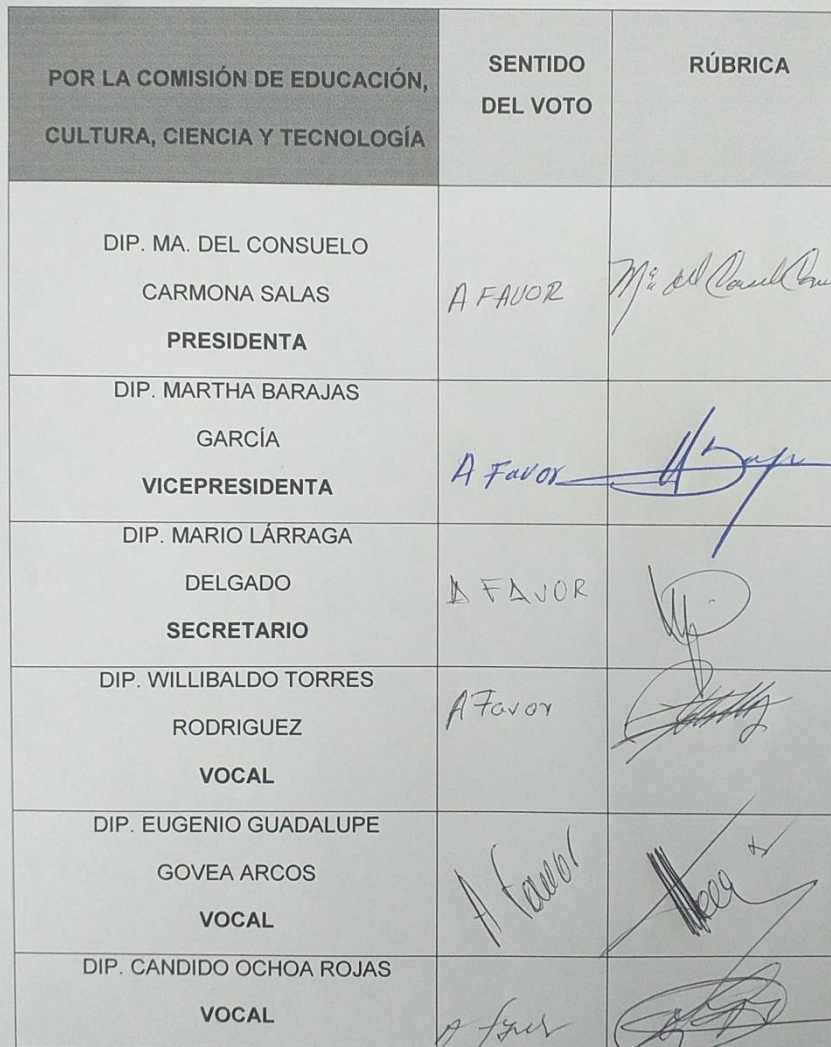 POR LA COMISIÓN DE EDUCACIÓN,
CULTURA, CIENCIA Y TECNOLOGÍA
SENTIDO
DEL VOTO
RÚBRICA
DIP. MA. DEL CONSUELO
CARMONA SALAS
PRESIDENTA
A FAVOR
DIP. MARTHA BARAJAS
GARCÍA
VICEPRESIDENTA
A Favor
DIP. MARIO LÁRRAGA
DELGADO
SECRETARIO
A FAVOR
DIP. WILLIBALDO TORRES
RODRIGUEZ
VOCAL
A Favor
DIP. EUGENIO GUADALUPE
GOVEA ARCOS
VOCAL
A Favor
DIP. CANDIDO OCHOA ROJAS
VOCAL
A favor